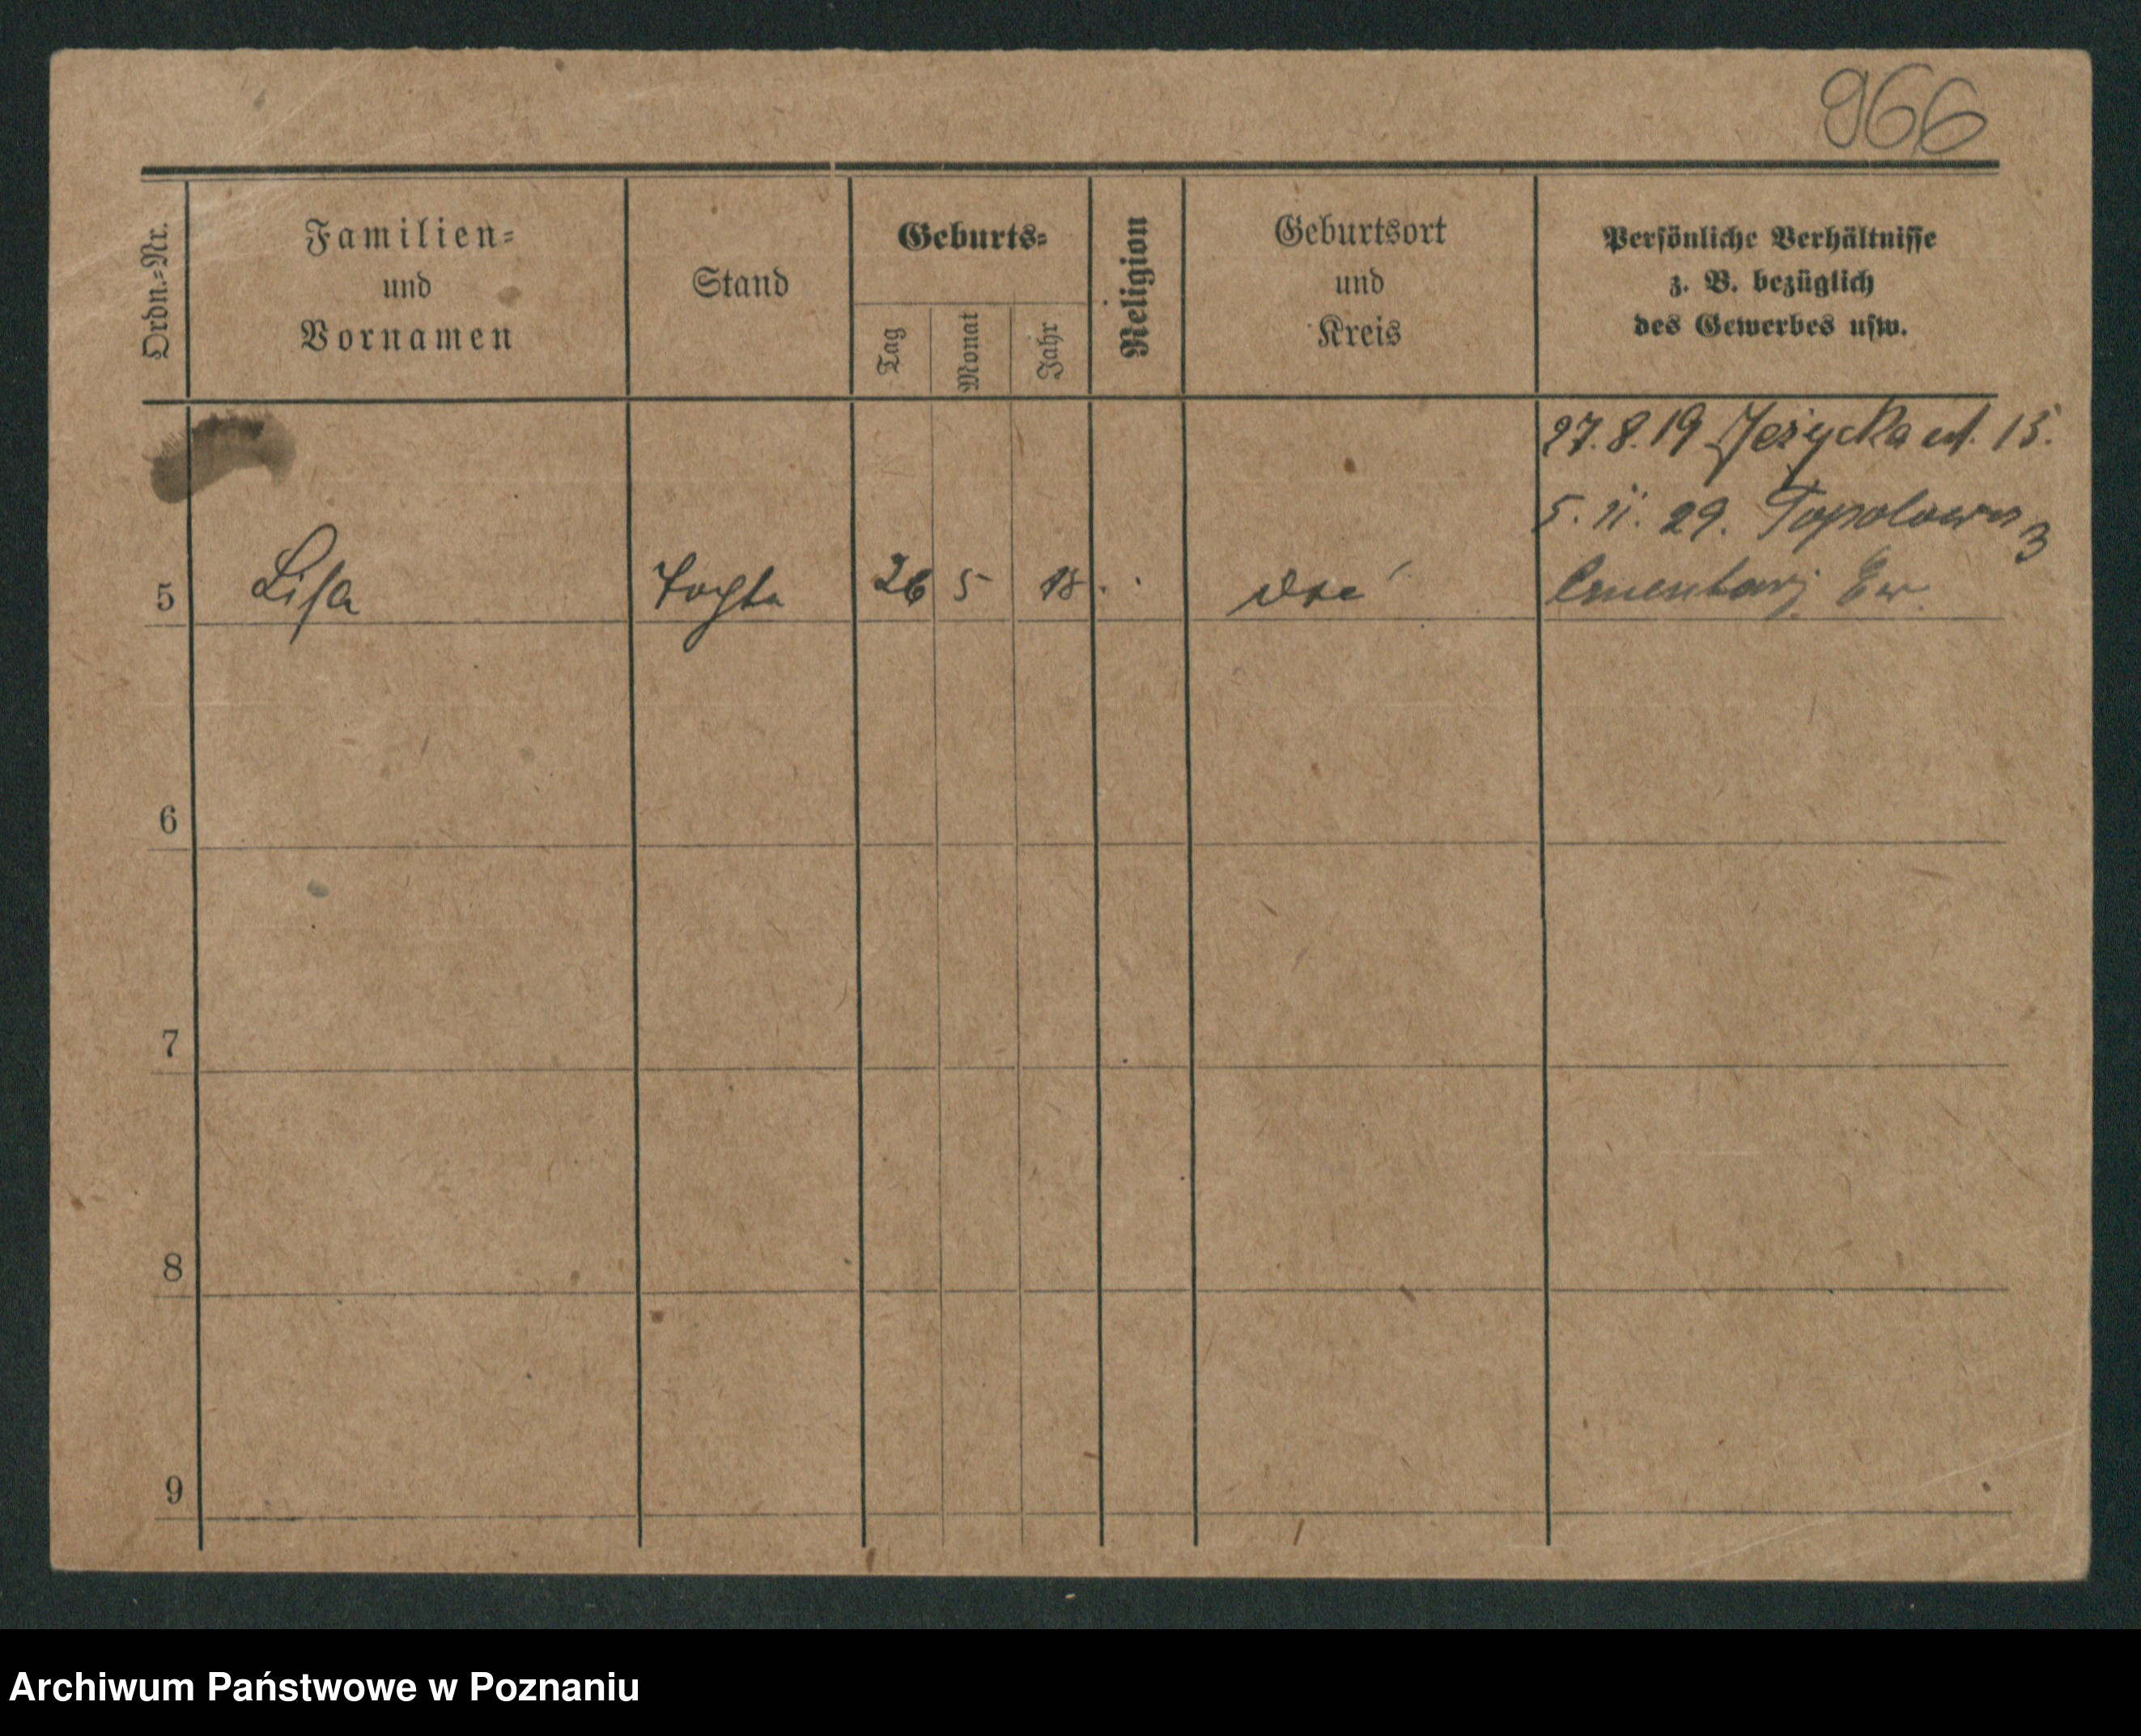 966
Ordn.=Nr.
Familien=
und
Vornamen
Stand
Geburts=
Tag
Monat
Jahr
Religion
Geburtsort
und
Kreis
Persönliche Verhältnisse
z. B. bezüglich
des Gewerbes usw.
27.8.19 Jeżycka 15.
5. 11. 29. Topolowa 3
5 Lisa 26 5 18 Cmentarz Ew.
6
7
8
9
Archiwum Państwowe w Poznaniu